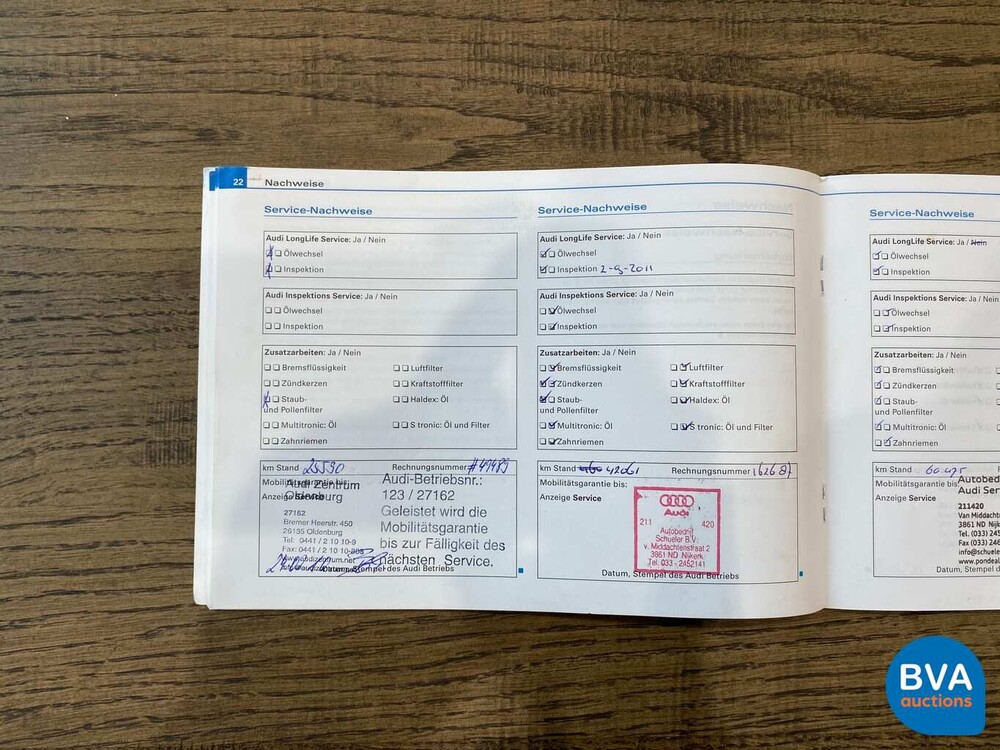 22 Nachweise
Service-Nachweise
Audi LongLife Service: Ja / Nein
Ölwechsel
Inspektion
Audi Inspektions Service: Ja / Nein
Ölwechsel
Inspektion
Zusatzarbeiten: Ja / Nein
Bremsflüssigkeit Luftfilter
Zündkerzen Kraftstofffilter
Staub- Haldex: Öl
und Pollenfilter
Multitronic: Öl S tronic: Öl und Filter
Zahnriemen
km Stand Rechnungsnummer #49489
Mobilitätsgarantie bis:
Anzeige Service
Audi Zentrum
Oldenburg
27162
Bremer Heerstr. 450
26135 Oldenburg
Tel: 0441 / 2 10 10-9
Fax: 0441 / 2 10 10-
Audi-Betriebsnr.:
123 / 27162
Geleistet wird die
Mobilitätsgarantie
bis zur Fälligkeit des
nächsten Service.
Datum, Stempel des Audi Betriebs
Service-Nachweise
Audi LongLife Service: Ja / Nein
Ölwechsel
Inspektion 2-9-2011
Audi Inspektions Service: Ja / Nein
Ölwechsel
Inspektion
Zusatzarbeiten: Ja / Nein
Bremsflüssigkeit Luftfilter
Zündkerzen Kraftstofffilter
Staub- Haldex: Öl
und Pollenfilter
Multitronic: Öl S tronic: Öl und Filter
Zahnriemen
km Stand 42061 Rechnungsnummer 162687
Mobilitätsgarantie bis:
Anzeige Service
Audi
211 420
Autobedrijf
Schueler B.V.
v. Middachtenstraat 2
3861 ND Nijkerk
Tel. 033 - 2452141
Datum, Stempel des Audi Betriebs
Service-Nachweise
Audi LongLife Service: Ja / Nein
Ölwechsel
Inspektion
Audi Inspektions Service: Ja / Nein
Ölwechsel
Inspektion
Zusatzarbeiten: Ja / Nein
Bremsflüssigkeit
Zündkerzen
Staub-
und Pollenfilter
Multitronic: Öl
Zahnriemen
km Stand 60.475 Re
Mobilitätsgarantie bis:
Anzeige Service
Autobed
Audi Ser
211420
Van Middacht
3861 ND Nijk
Tel. (033) 24
Fax (033) 246
info@schuele
www.pondeal
Datum, Stempel d
BVA
auctions